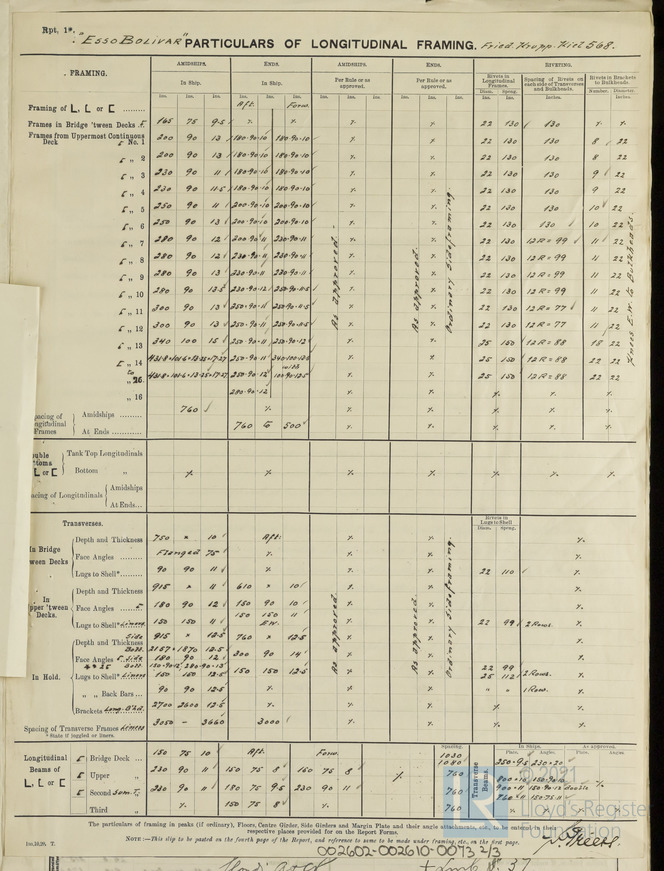 Rpt. 1*.
"ESSO BOLIVAR" PARTICULARS OF LONGITUDINAL FRAMING. Fried. Krupp. Kiel 568.
FRAMING. AMIDSHIPS. ENDS. AMIDSHIPS. ENDS. RIVETING.
In Ship. In Ship. Per Rule or as approved. Per Rule or as approved. Rivets in Longitudinal Frames. Spacing of Rivets on each side of Transverses and Bulkheads. Rivets in Brackets to Bulkheads.
Diam. Spcng. Inches. Number. Diameter Inches.
Framing of L, L or [ Aft. Forw.
Frames in Bridge 'tween Decks 165 75 9.5 22 130 130
Frames from Uppermost Continuous Deck No. 1 200 90 13 180.90.10 180.90.10 22 130 130 8 22
„ 2 200 90 13 180.90.10 180.90.10 22 130 130 8 22
„ 3 230 90 11 180.90.10 180.90.10 22 130 130 9 22
„ 4 230 90 11.5 180.90.10 180.90.10 22 130 130 9 22
„ 5 250 90 11 200.90.10 200.90.10 22 130 130 10 22
„ 6 250 90 13 200.90.10 200.90.10 22 130 130 10 22
„ 7 280 90 12 200.90.11 230.90.11 22 130 12R = 99 11 22
„ 8 280 90 12 230.90.11 22 130 12R = 99 11 22
„ 9 280 90 13 230.90.11 230.90.11 22 130 12R = 99 11 22
„ 10 280 90 13.5 230.90.12 22 130 12R = 99 11 22
„ 11 300 90 13 250.90.11 22 130 12R = 77 11 22
„ 12 300 90 13 250.90.11 22 130 12R = 77 11 22
„ 13 340 100 15 250.90.11 250.90.12 25 150 12R = 88 22
„ 14 250.90.11 25 150 12R = 88 22 22
to
„ 26. 250.90.12 25 150 12R = 88 22 22
„ 16 280.90.12
As approved.
As approved.
Ordinary Sideframing.
Knees E.W. to Bulkheads.
Spacing of Longitudinal Frames Amidships 760
At Ends 760 to 500
L or [ Tank Top Longitudinals
Bottom „
Spacing of Longitudinals Amidships
At Ends
Transverses. Rivets in Lugs to Shell Diam. Spcng.
In Bridge 'tween Decks Depth and Thickness 750 × 10 Aft.
Face Angles Flanged 75
Lugs to Shell* 90 90 11 22 110
In Upper 'tween Decks. Depth and Thickness 915 × 11 610 × 10
Face Angles 180 90 12 150 90 10
150 150 11
Lugs to Shell* 150 150 11 E.W. 22 99 2 Rows.
In Hold. Depth and Thickness Side 915 × 12.5 760 × 12.5
2157 × 1870 12.5
Face Angles Side 180 90 12 300 90 14
22 99
Lugs to Shell* 150 150 12.5 150 150 12.5 25 112 2 Rows.
„ „ Back Bars 90 90 12.5 „ „ 1 Row.
Brackets 2700 2600 12.5
Spacing of Transverse Frames 3050 - 3660 3000
*State if joggled or liners.
As approved
As approved
Ordinary Sideframing.
Longitudinal Beams of L, L or [ Spacing. Transverse Beams. In Ships. As approved.
Plate. Angles. Plate. Angles.
Bridge Deck 150 75 10 Aft. Forw. 1030 1080 250.9.5 230.20
Upper „ 230 90 11 150 75 8 150 75 8 760
Second „ 230 90 11 180 75 9.5 230 90 11 760
Third „ 150 75 8 760
The particulars of framing in peaks (if ordinary), Floors, Centre Girder, Side Girders and Margin Plate and their angle attachments, &c., to be entered in their respective places provided for on the Report Forms.
NOTE:—This slip to be pasted on the fourth page of the Report, and reference to same to be made under framing, etc., on the first page.
© 2021
Lloyd's Register
Foundation
002602-002610-0073 2/3